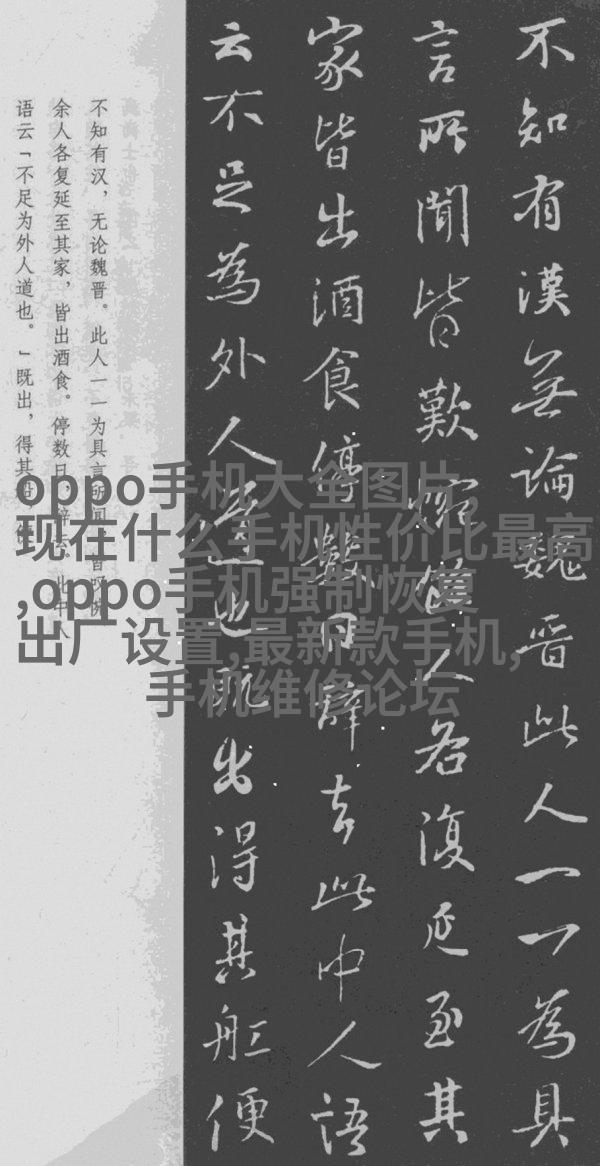 不知有漢無論魏晋此人一一为具
言所聞皆歎惋餘人各復延至其
家皆出酒食停數日辞去此中人語
云不足為外人道也既出得其舡便
不知有汉，无论魏晋。此人一一为具言所闻，皆叹惋。
余人各复延至其家，皆出酒食。停数日，辞去。此中人
语云「不足为外人道也。」既出，得其船，便
oppo手机大全图片,
现在什么手机性价比最高
,oppo手机强制恢复
出厂设置,最新款手机,
手机维修论坛